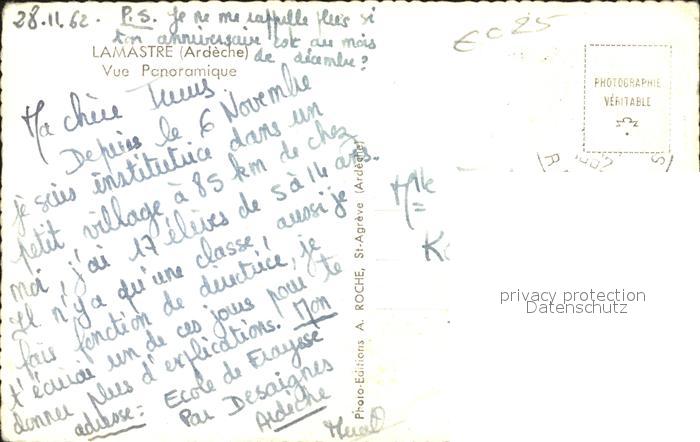 28.11.62. P.S. Je ne me rappelle plus si
ton anniversaire est au mois
de décembre?
LAMASTRE (Ardèche)
Vue Panoramique
Ma chère
Depuis le 6 Novembre
je suis institutrice dans un
petit village à 85 km de chez
moi, j'ai 17 élèves de 5 à 14 ans.
Il n'y a qu'une classe, aussi je
fais fonction de directrice, je
t'écrirai un de ces jours pour te
donner plus d'explications. Mon
adresse: Ecole de Fraysse
Par Desaignes
Ardèche
Photo-Editions A. ROCHE, St-Agrève (Ardèche)
EC 25
PHOTOGRAPHIE
VÉRITABLE
Mlle
privacy protection
Datenschutz